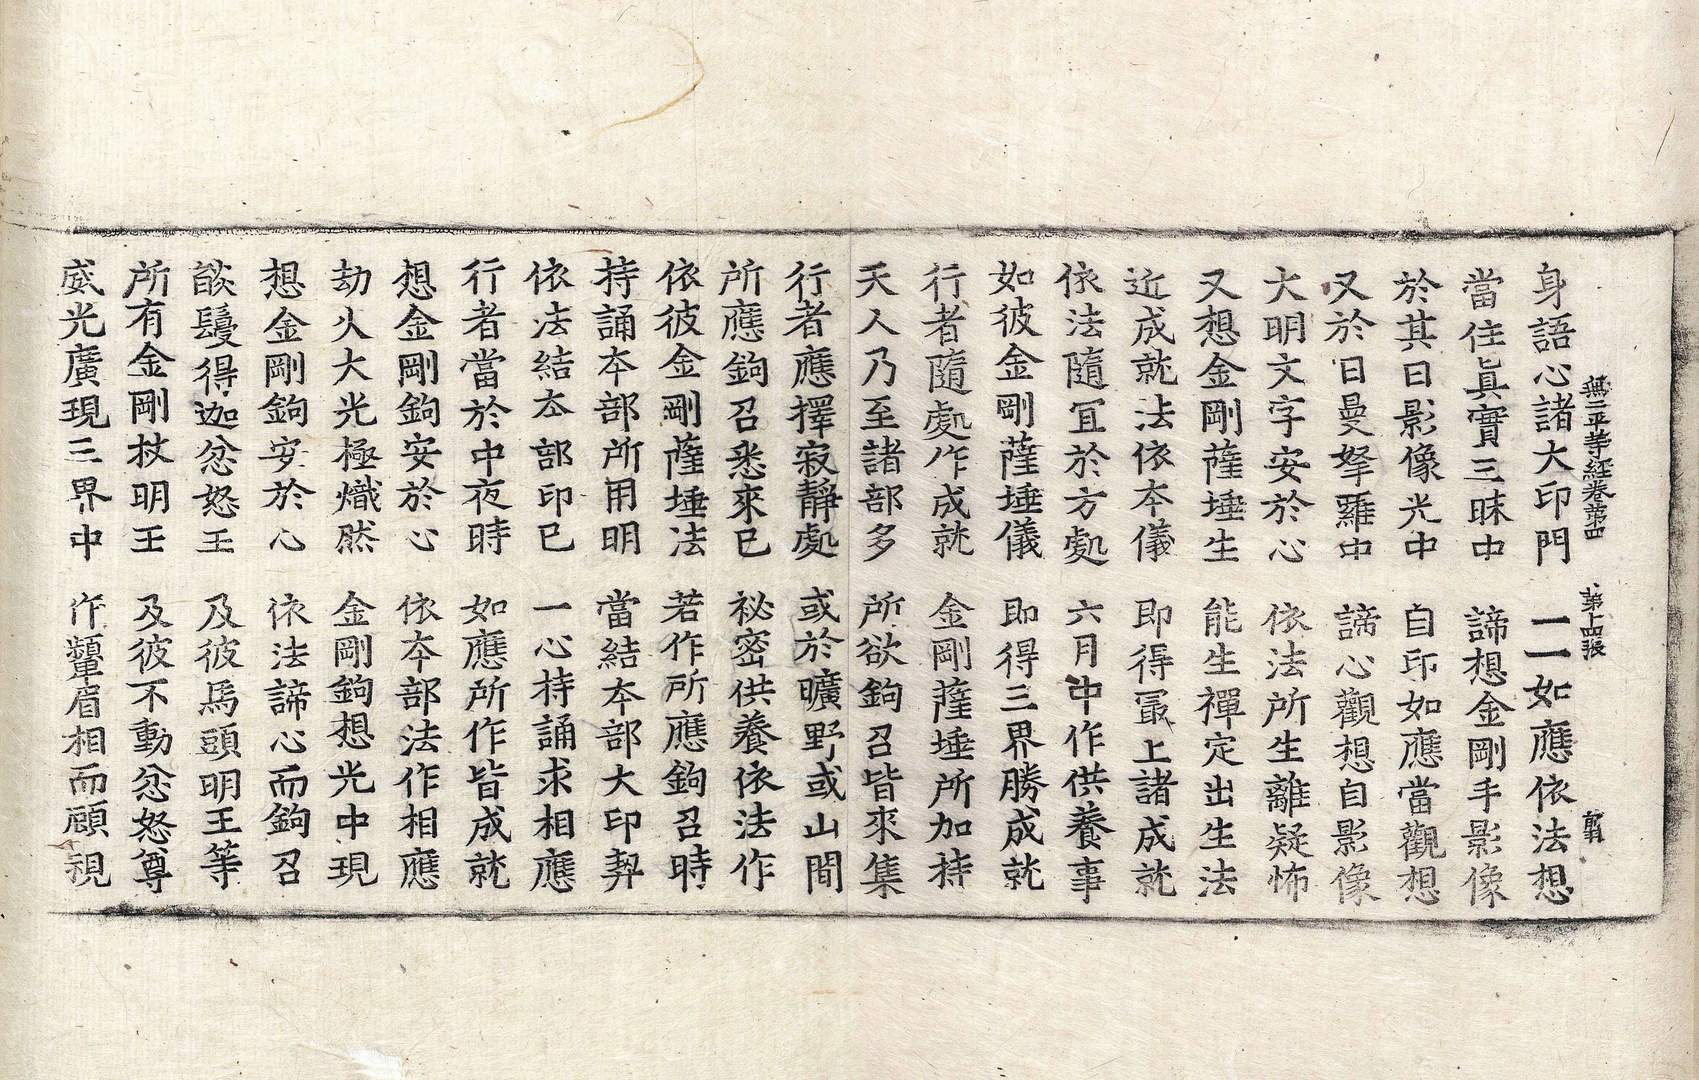 無二平等經卷第四 第十四張 郡
身語心諸大印門 一一如應依法想
當住眞實三昧中 諦想金剛手影像
於其日影像光中 自印如應當觀想
又於日曼拏羅中 諦心觀想自影像
大明文字安於心 依法所生離疑怖
又想金剛薩埵生 能生禪定出生法
近成就法依本儀 即得最上諸成就
依法隨宜於方處 六月中作供養事
如彼金剛薩埵儀 即得三界勝成就
行者隨處作成就 金剛薩埵所加持
天人乃至諸部多 所欲鉤召皆來集
行者應擇寂靜處 或於曠野或山間
所應鉤召悉來已 祕密供養依法作
依彼金剛薩埵法 若作所應鉤召時
持誦本部所用明 當結本部大印契
依法結本部印已 一心持誦求相應
行者當於中夜時 如應所作皆成就
想金剛鉤安於心 依本部法作相應
劫火大光極熾然 金剛鉤想光中現
想金剛鉤安於心 依法諦心而鉤召
燄鬘得迦忿怒王 及彼馬頭明王等
所有金剛杖明王 及彼不動忿怒尊
威光廣現三界中 作顰眉相而顧視